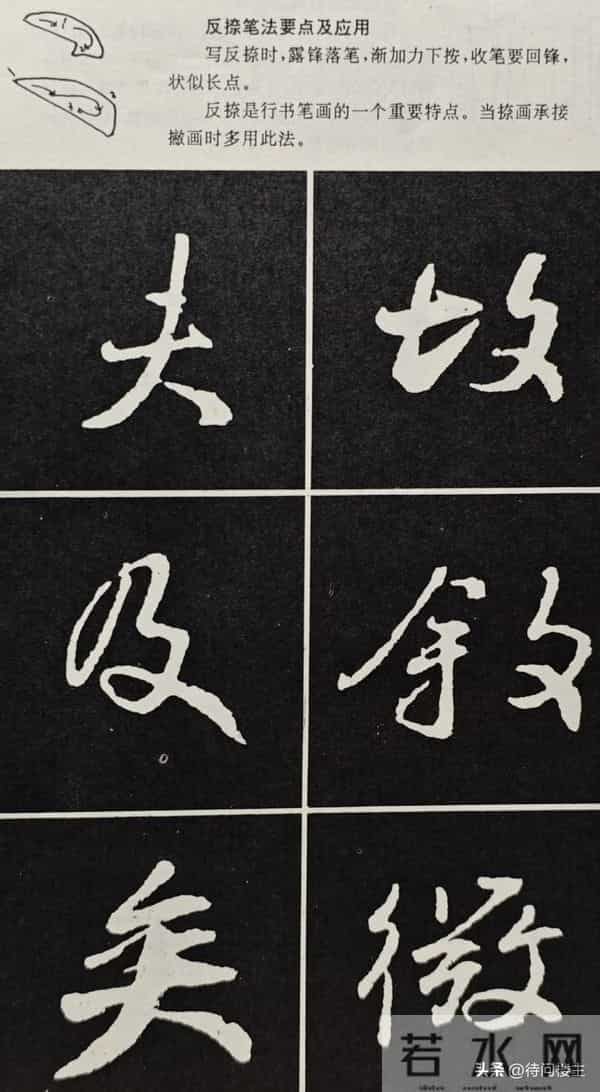 反捺笔法要点及应用
写反捺时,露锋落笔,渐加力下按,收笔要回锋,
状似长点。
反捺是行书笔画的一个重要特点。当捺画承接
撇画时多用此法。
夫 故
及 叙
矣 微
若水网
头条@待问楼主